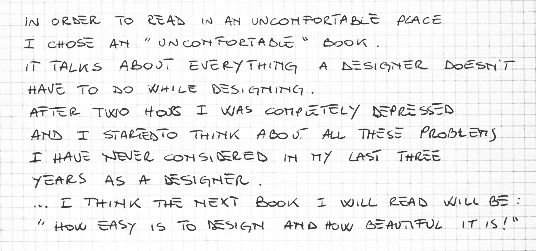 IN ORDER TO READ IN AN UNCOMFORTABLE PLACE
I CHOSE AN "UNCOMFORTABLE" BOOK.
IT TALKS ABOUT EVERYTHING A DESIGNER DOESN'T
HAVE TO DO WHILE DESIGNING.
AFTER TWO HOURS I WAS COMPLETELY DEPRESSED
AND I STARTED TO THINK ABOUT ALL THESE PROBLEMS
I HAVE NEVER CONSIDERED IN MY LAST THREE
YEARS AS A DESIGNER.
... I THINK THE NEXT BOOK I WILL READ WILL BE:
"HOW EASY IS TO DESIGN AND HOW BEAUTIFUL IT IS!"